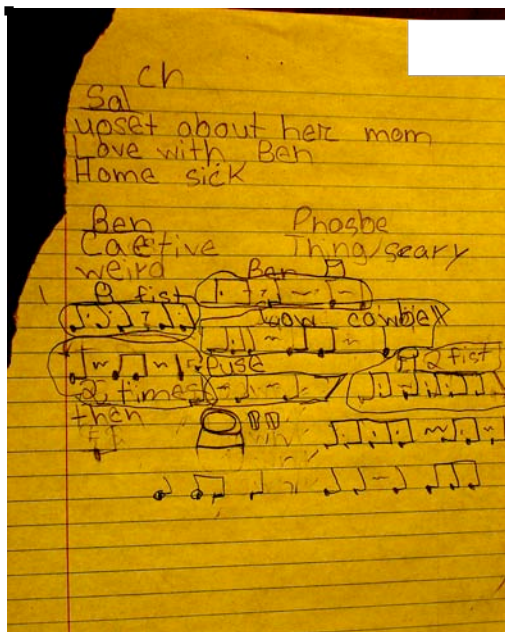 ch
Sal
upset about her mom
Love with Ben
Home sick
Ben
weird
Phoebe
Thing/scary
Ben
fist
Low cowbell
puse
2 fist
2 times
then